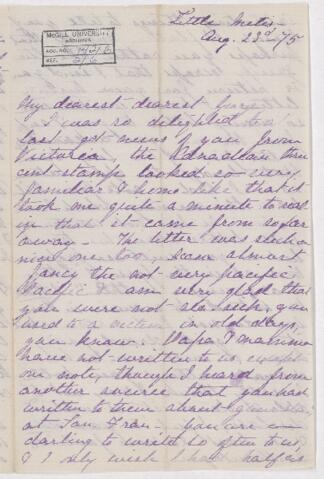 Little Metis
Aug. 23rd 75
McGILL UNIVERSITY
ARCHIVES
ACC. NO.
REF.
My dearest dearest
I was so delighted to at
last get news of you from
Victoria, the Canadian three
cent stamp looked so very
familiar & home like that it
took me quite a minute to real
ize that it came from so far
away. The letter was such a
nice one too. I can almost
fancy the not very pacific
Pacific am very glad that
you were not sea sick, you
used to a victim in old days,
you know. Papa & mamma
have not written to us except
one note, though I heard from
another source that you had
written to them about
at San Fran. You are a
darling to write so often to us
& I only wish I had half as